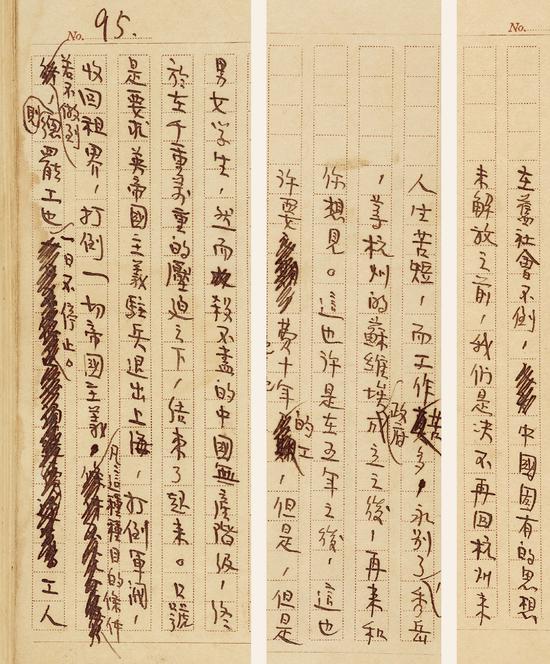 No.
在舊社會不倒，中國固有的思想
未解放之前，我們是决不再回杭州来
人生苦短，而工作苦多，永别了岳
，等杭州的蘇維埃政府成立之後，再来和
你想見。這也許是在五年之後，這也
許要費十年的工，但是，但是
No. 95.
男女学生，然而殺不盡的中國無產階級，终
於在千重萬重的壓迫之下，结束了起来。口號
是要求英帝國主義駐兵退出上海，打倒軍閥，
收回租界，打倒一切帝國主義。凡這種種目的條件
若不做到
則總罷工也一日不停止。工人